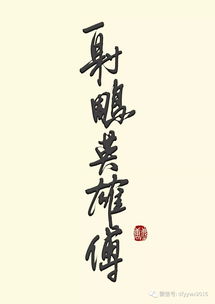 射鵰英雄傳
微信号: sfyywx2015